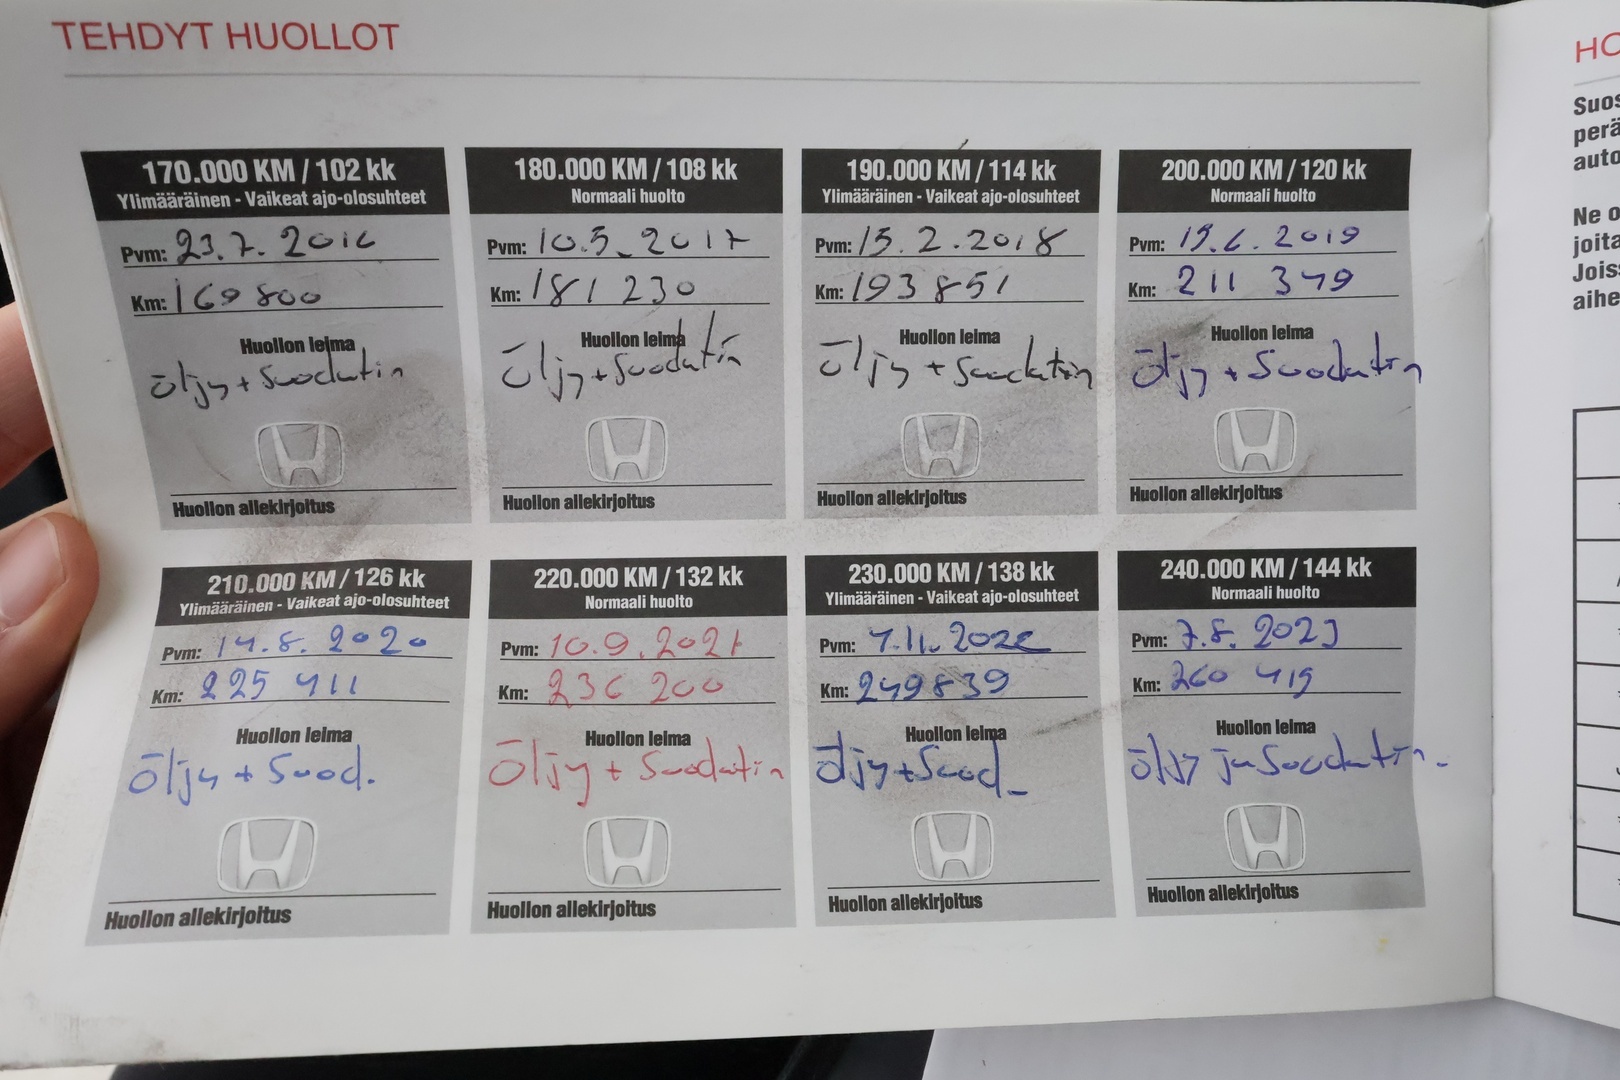 TEHDYT HUOLLOT
170.000 KM / 102 kk
Ylimääräinen - Vaikeat ajo-olosuhteet
Pvm: 23.7. 2016
Km: 169 800
Huollon leima
öljy + Suodatin
Huollon allekirjoitus
180.000 KM / 108 kk
Normaali huolto
Pvm: 10.5. 2017
Km: 181 230
Huollon leima
Öljy + Suodatin
Huollon allekirjoitus
190.000 KM / 114 kk
Ylimääräinen - Vaikeat ajo-olosuhteet
Pvm: 15.2.2018
Km: 193 851
Huollon leima
Öljy + Suodatin
Huollon allekirjoitus
200.000 KM / 120 kk
Normaali huolto
Pvm: 19.6.2019
Km: 211 349
Huollon leima
Öljy + Suodatin
Huollon allekirjoitus
210.000 KM / 126 kk
Ylimääräinen - Vaikeat ajo-olosuhteet
Pvm: 14.8.2020
Km: 225 411
Huollon leima
Öljy + Suod.
Huollon allekirjoitus
220.000 KM / 132 kk
Normaali huolto
Pvm: 10.9.2021
Km: 236 200
Huollon leima
Öljy + Suodatin
Huollon allekirjoitus
230.000 KM / 138 kk
Ylimääräinen - Vaikeat ajo-olosuhteet
Pvm: 7.11.2022
Km: 249839
Huollon leima
Öljy + Suod
Huollon allekirjoitus
240.000 KM / 144 kk
Normaali huolto
Pvm: 7.8.2023
Km: 260 419
Huollon leima
öljy ja Suodatin.
Huollon allekirjoitus
HO
Suos
perä
auto
Ne o
joita
Jois
aihe